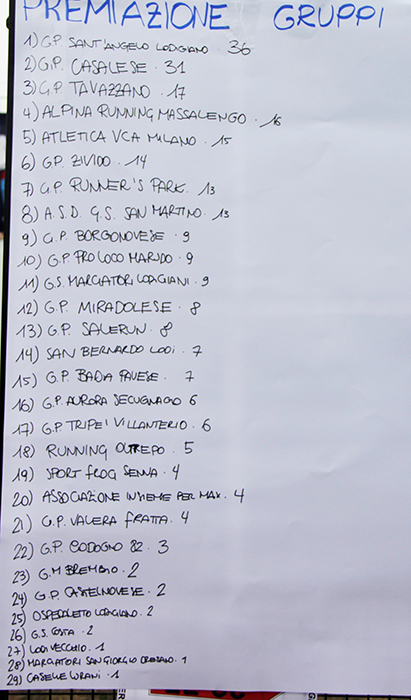 PREMIAZIONE GRUPPI
1) G.P. SANT'ANGELO LODIGIANO 36
2) G.P. CASALESE . 31
3) G.P TAVAZZANO . 17
4) ALPINA RUNNING MASSALENGO . 16
5) ATLETICA VCA MILANO . 15
6) G.P. ZIVIDO . 14
7) G.P. RUNNER'S PARK . 13
8) A.S.D. G.S. SAN MARTINO . 13
9) G.P. BORGONOVESE . 9
10) G.P PRO LOCO MARUDO . 9
11) G.S. MARCIATORI LODIGIANI . 9
12) G.P. MIRADOLESE . 8
13) G.P. SALERUN . 8
14) SAN BERNARDO LODI . 7
15) G.P. BADIA PAVESE . 7
16) G.P. AURORA SECUGNAGO 6
17) G.P TRIPE' VILLANTERIO . 6
18) RUNNING OLTREPO . 5
19) SPORT FROG SENNA . 4
20) ASSOCIAZIONE INSIEME PER MAX . 4
21) G.P. VALERA FRATTA . 4
22) G.P. CODOGNO 82 . 3
23) G.M BREMBIO . 2
24) G.P. CASTELNOVESE . 2
25) OSPEDALETTO LODIGIANO . 2
26) G.S. COSTA . 2
27) LODI VECCHIO . 1
28) MARCIATORI SAN GIORGIO . 1
29) CASELLE LURANI . 1